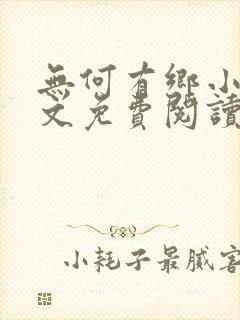 無何有鄉小
文免費閱讀
小耗子最膩害